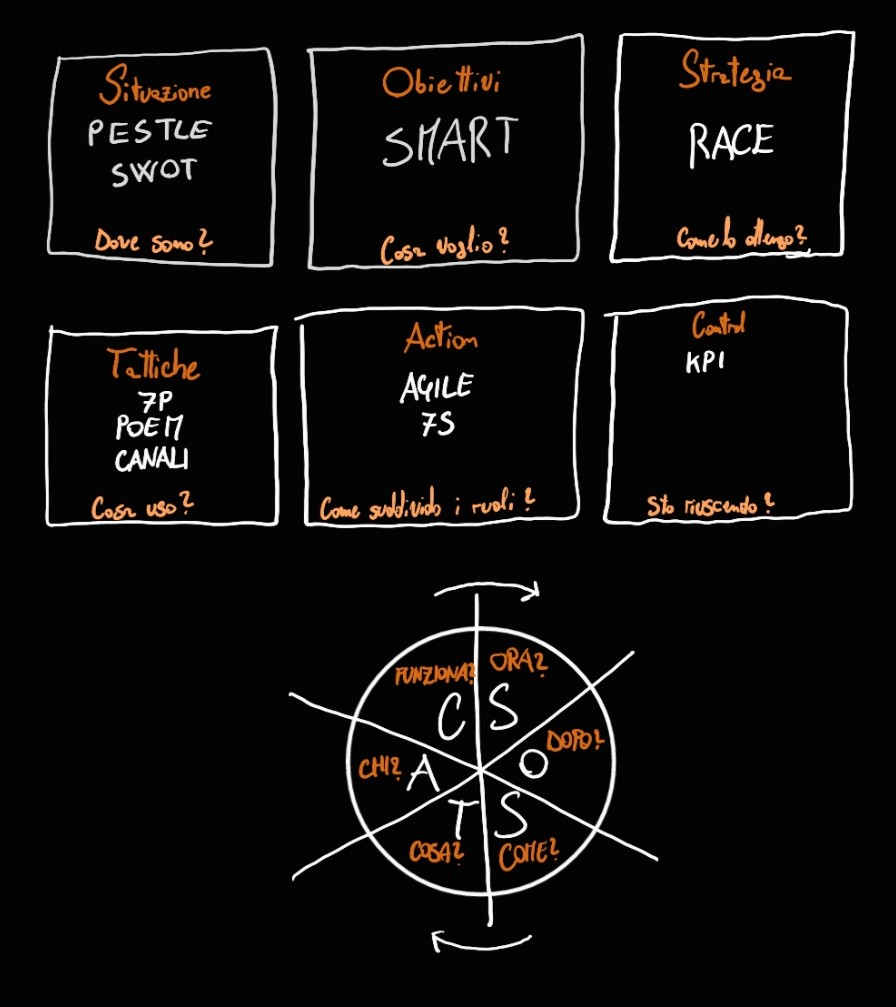 Situazione
PESTLE
SWOT
Dove sono?
Obiettivi
SMART
Cosa voglio?
Strategia
RACE
Come lo ottengo?
Tattiche
7P
POEM
CANALI
Cosa uso?
Action
AGILE
7S
Come suddivido i ruoli?
Control
KPI
Sto riuscendo?
FUNZIONA?
ORA?
C
S
CHI?
A
O
DOPO?
T
S
COSA?
COME?